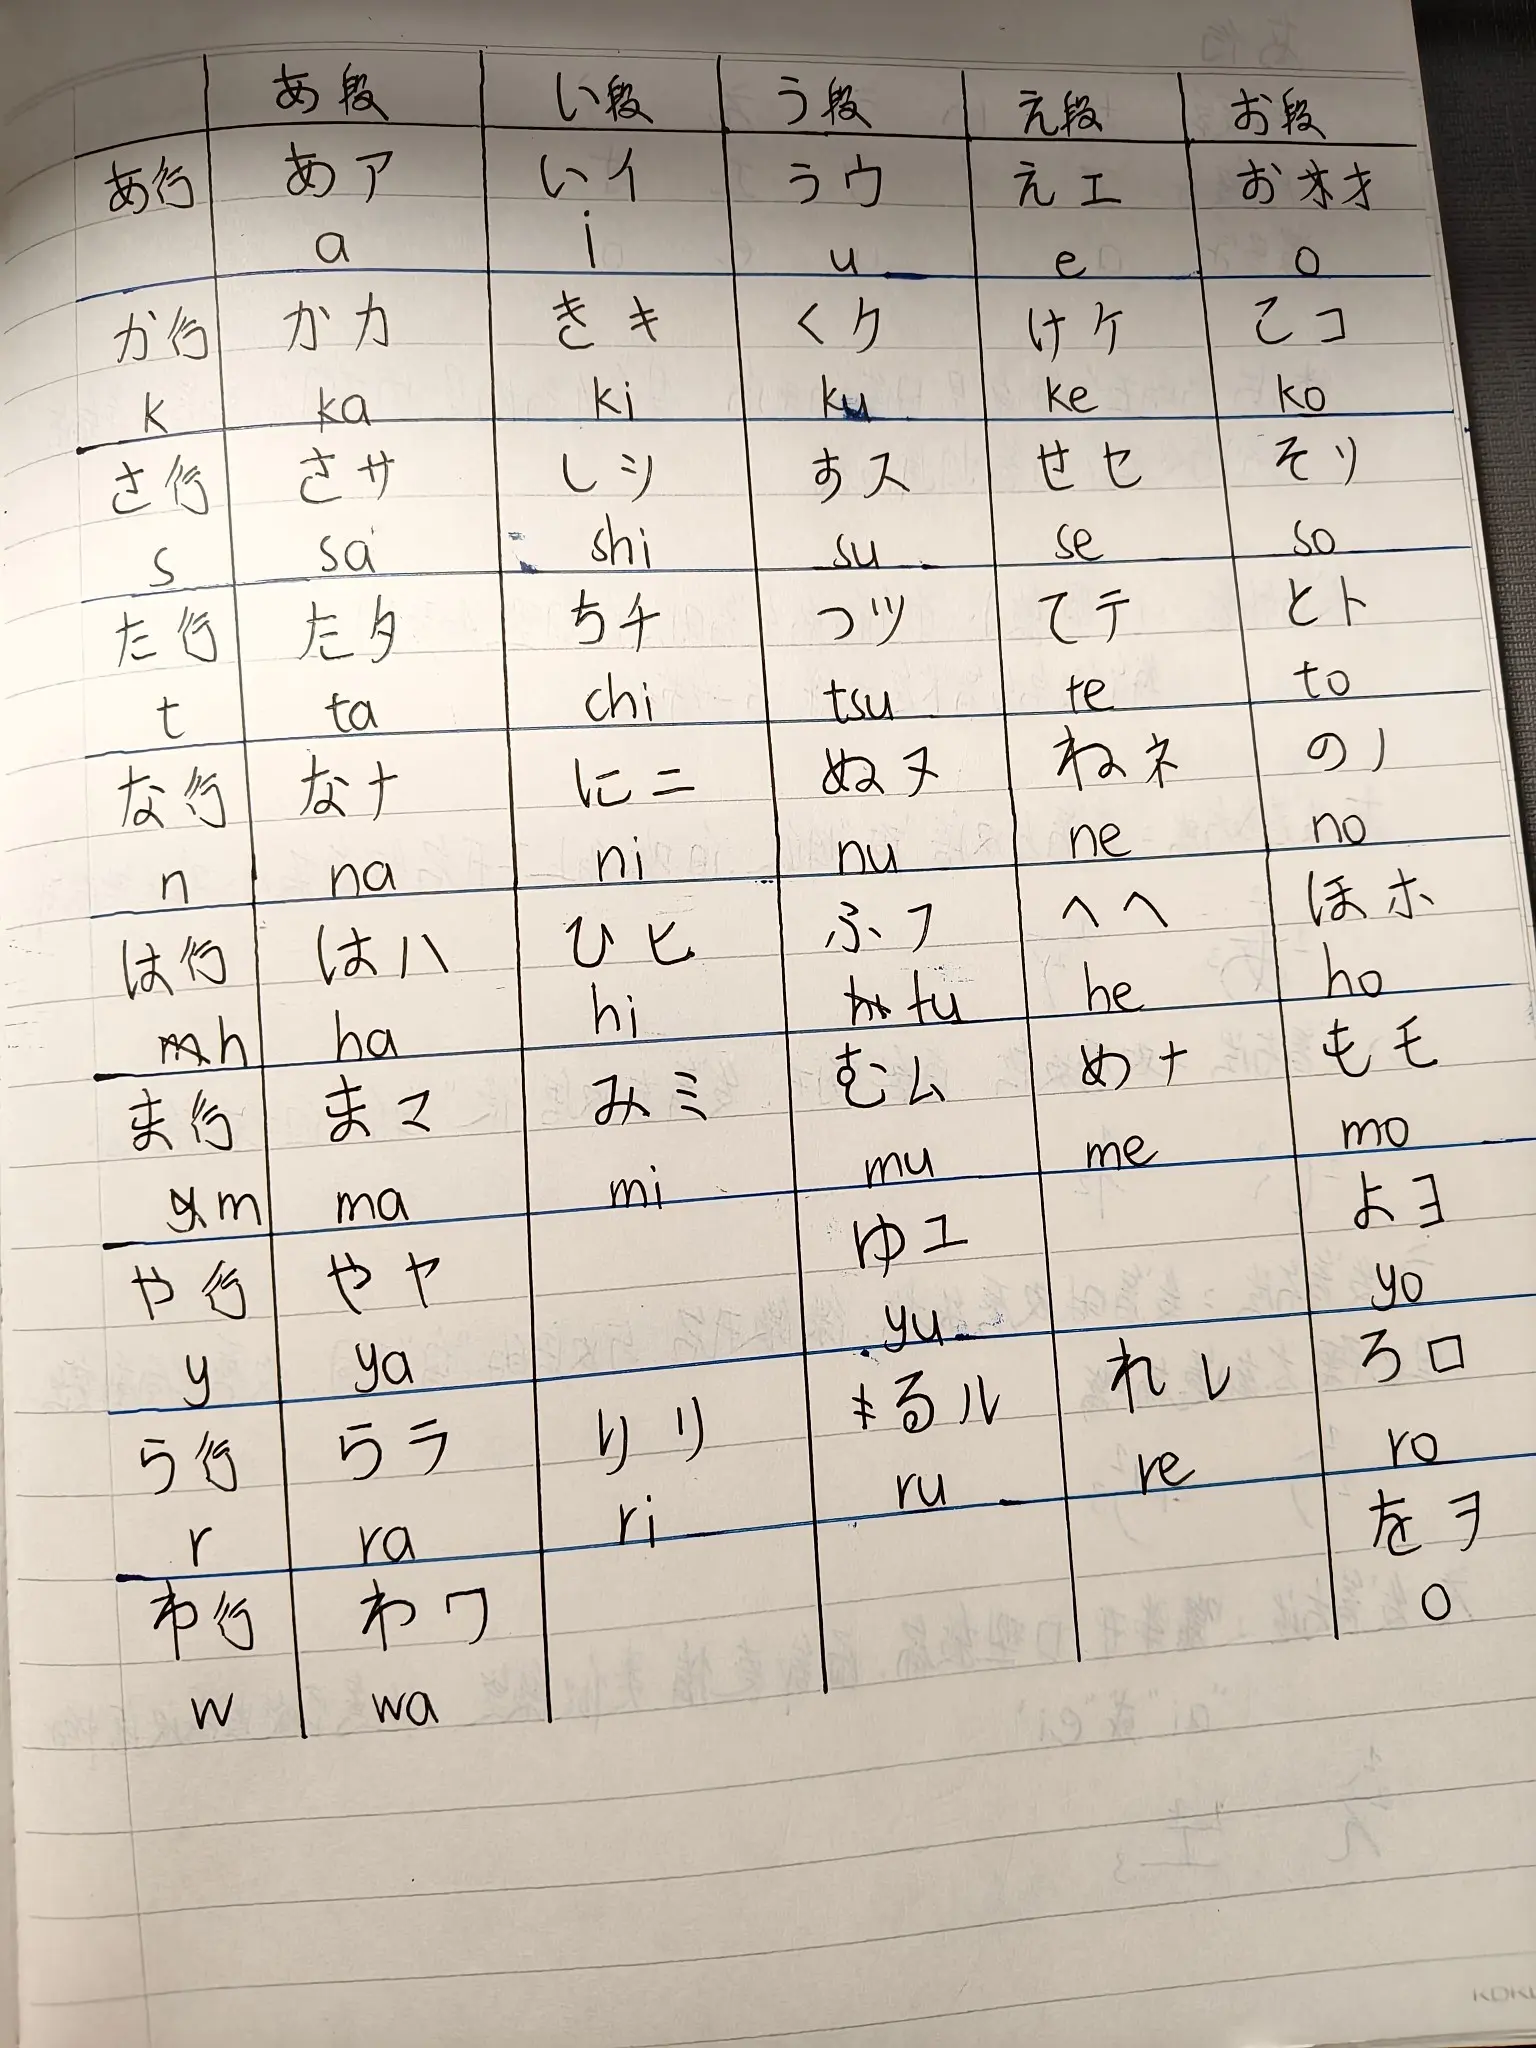 あ段 い段 う段 え段 お段
あ行 あア いイ うウ えエ おオオ
a i u e o
か行 かカ きキ くク けケ こコ
k ka ki ku ke ko
さ行 さサ しシ すス せセ そソ
s sa shi su se so
た行 たタ ちチ つツ てテ とト
t ta chi tsu te to
な行 なナ にニ ぬヌ ねネ のノ
n na ni nu ne no
は行 はハ ひヒ ふフ へヘ ほホ
h ha hi fu he ho
ま行 まマ みミ むム めナ もモ
m ma mi mu me mo
や行 やヤ ゆユ よヨ
y ya yu yo
ら行 らラ りリ るル れレ ろロ
r ra ri ru re ro
わ行 わワ をヲ
w wa o